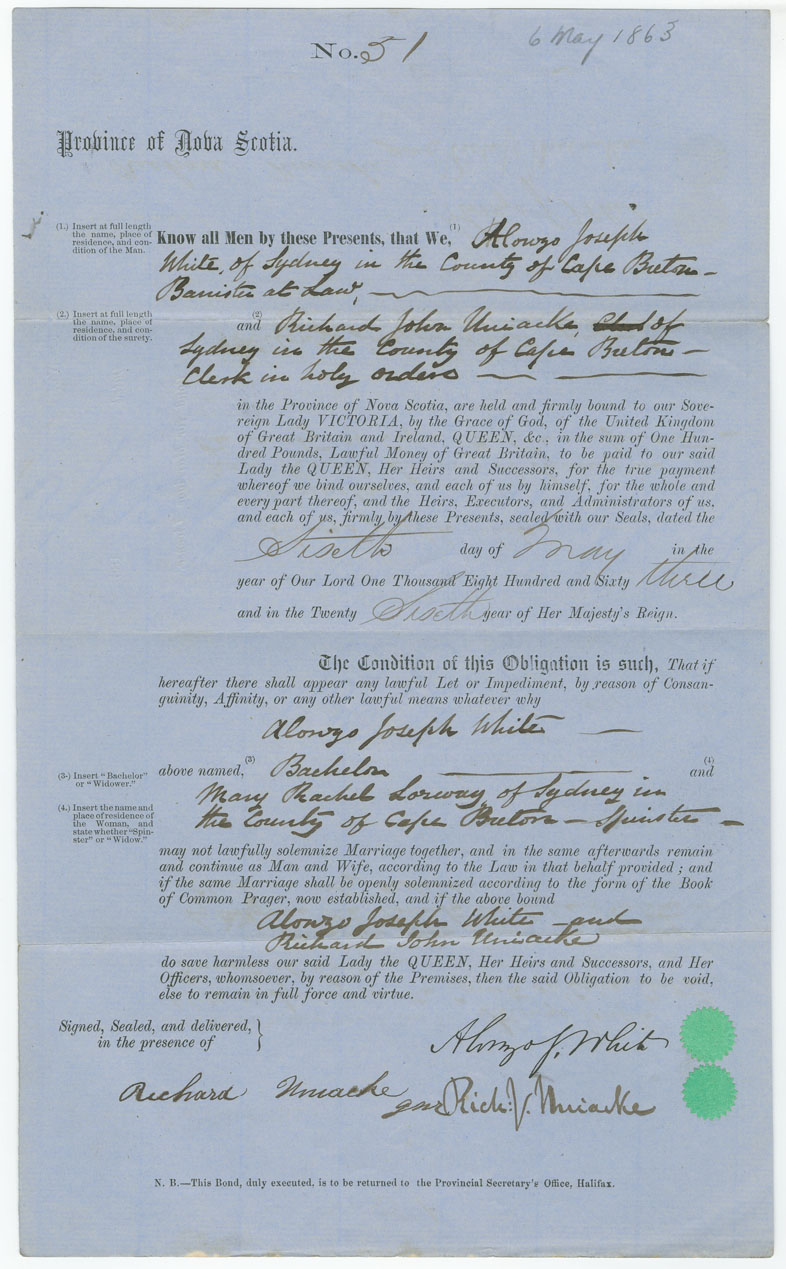 No. 51
6 May 1863
Province of Nova Scotia.
(1.) Insert at full length
the name, place of
residence, and con-
dition of the Man.
Know all Men by these Presents, that We, (1) Alonzo Joseph
White, of Sydney in the County of Cape Breton –
Barrister at Law,
(2.) Insert at full length
the name, place of
residence, and con-
dition of the surety.
(2)
and Richard John Uniacke, of
Sydney in the County of Cape Breton –
Clerk in holy orders
in the Province of Nova Scotia, are held and firmly bound to our Sove-
reign Lady VICTORIA, by the Grace of God, of the United Kingdom
of Great Britain and Ireland, QUEEN, &c., in the sum of One Hun-
dred Pounds, Lawful Money of Great Britain, to be paid to our said
Lady the QUEEN, Her Heirs and Successors, for the true payment
whereof we bind ourselves, and each of us by himself, for the whole and
every part thereof, and the Heirs, Executors, and Administrators of us,
and each of us, firmly by these Presents, sealed with our Seals, dated the
Sixth day of May in the
year of Our Lord One Thousand Eight Hundred and Sixty three
and in the Twenty Sixth year of Her Majesty's Reign.
The Condition of this Obligation is such, That if
hereafter there shall appear any lawful Let or Impediment, by reason of Consan-
guinity, Affinity, or any other lawful means whatever why
Alonzo Joseph White –
(3.) Insert "Bachelor"
or "Widower."
above named, (3) Bachelor (4) and
(4.) Insert the name and
place of residence of
the Woman, and
state whether "Spin-
ster" or "Widow."
Mary Rachel Lorway, of Sydney in
the County of Cape Breton – Spinster –
may not lawfully solemnize Marriage together, and in the same afterwards remain
and continue as Man and Wife, according to the Law in that behalf provided ; and
if the same Marriage shall be openly solemnized according to the form of the Book
of Common Prager, now established, and if the above bound
Alonzo Joseph White – and
Richard John Uniacke
do save harmless our said Lady the QUEEN, Her Heirs and Successors, and Her
Officers, whomsoever, by reason of the Premises, then the said Obligation to be void,
else to remain in full force and virtue.
Signed, Sealed, and delivered,
in the presence of
Alonzo J. White
Richard Uniacke
Rich: J. Uniacke
N. B.—This Bond, duly executed, is to be returned to the Provincial Secretary's Office, Halifax.